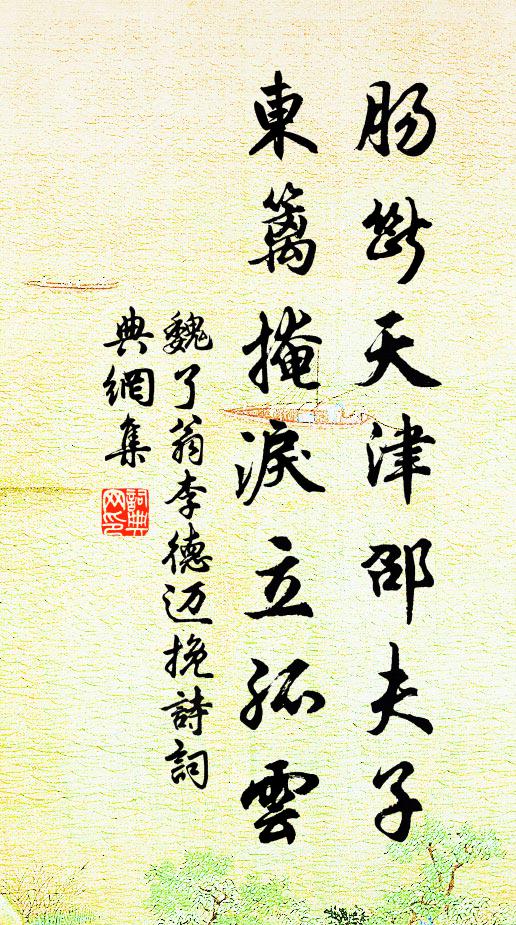 肠断天津邵夫子
東篱掩淚立孤雲
魏了翁李德迈挽詩詞
典網集
詞典网印